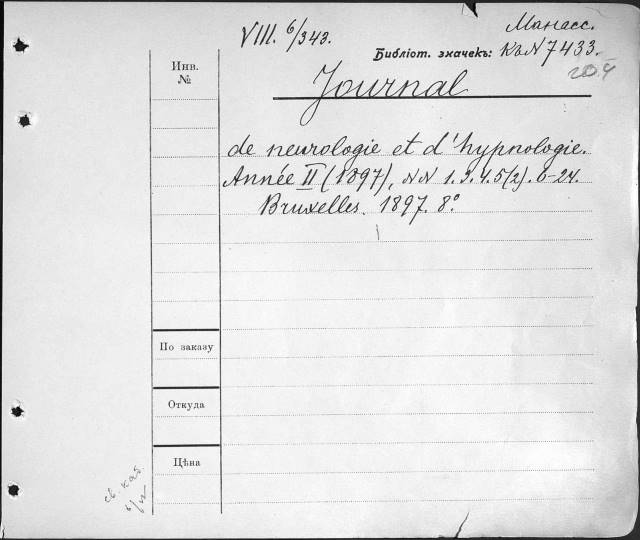 VIII. 6/343.
Манасс.
Библіот. значекъ: къ N 7433.
Инв. №
Journal
de neurologie et d'hypnologie.
Année II (1897), NN 1.3.4.5(2). 6-24.
Bruxelles. 1897. 8°
По заказу
Откуда
Цѣна
св. каб.